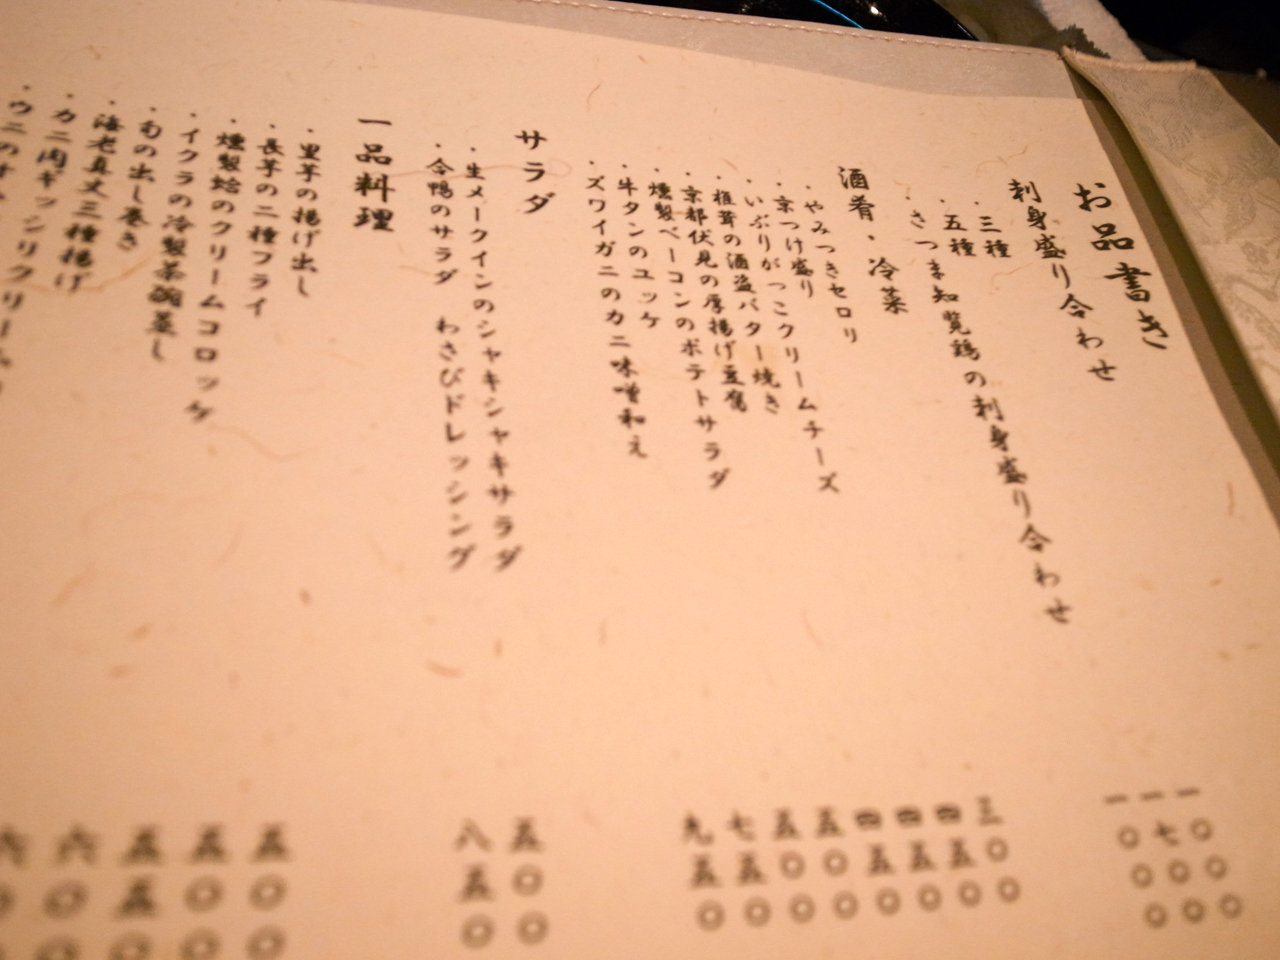 お品書き
刺身盛り合わせ
・三種 一〇〇〇
・五種 一七〇〇
・さつま知覧鶏の刺身盛り合わせ 一〇〇〇
酒肴・冷菜
・やみつきセロリ 三〇〇
・京つけ盛り 四五〇
・いぶりがっこクリームチーズ 四五〇
・椎茸の酒盗バター焼き 四五〇
・京都伏見の厚揚げ豆腐 五〇〇
・燻製ベーコンのポテトサラダ 五〇〇
・牛タンのユッケ 七五〇
・ズワイガニのカニ味噌和え 九五〇
サラダ
・生メークインのシャキシャキサラダ 五〇〇
・合鴨のサラダ わさびドレッシング 八五〇
一品料理
・里芋の揚げ出し 五〇〇
・長芋の二種フライ 五〇〇
・燻製蛤のクリームコロッケ 五五〇
・イクラの冷製茶碗蒸し 六〇〇
・旬の出し巻き
・海老真丈三種揚げ
・カニ肉ギッシリクリーム
・ウニの